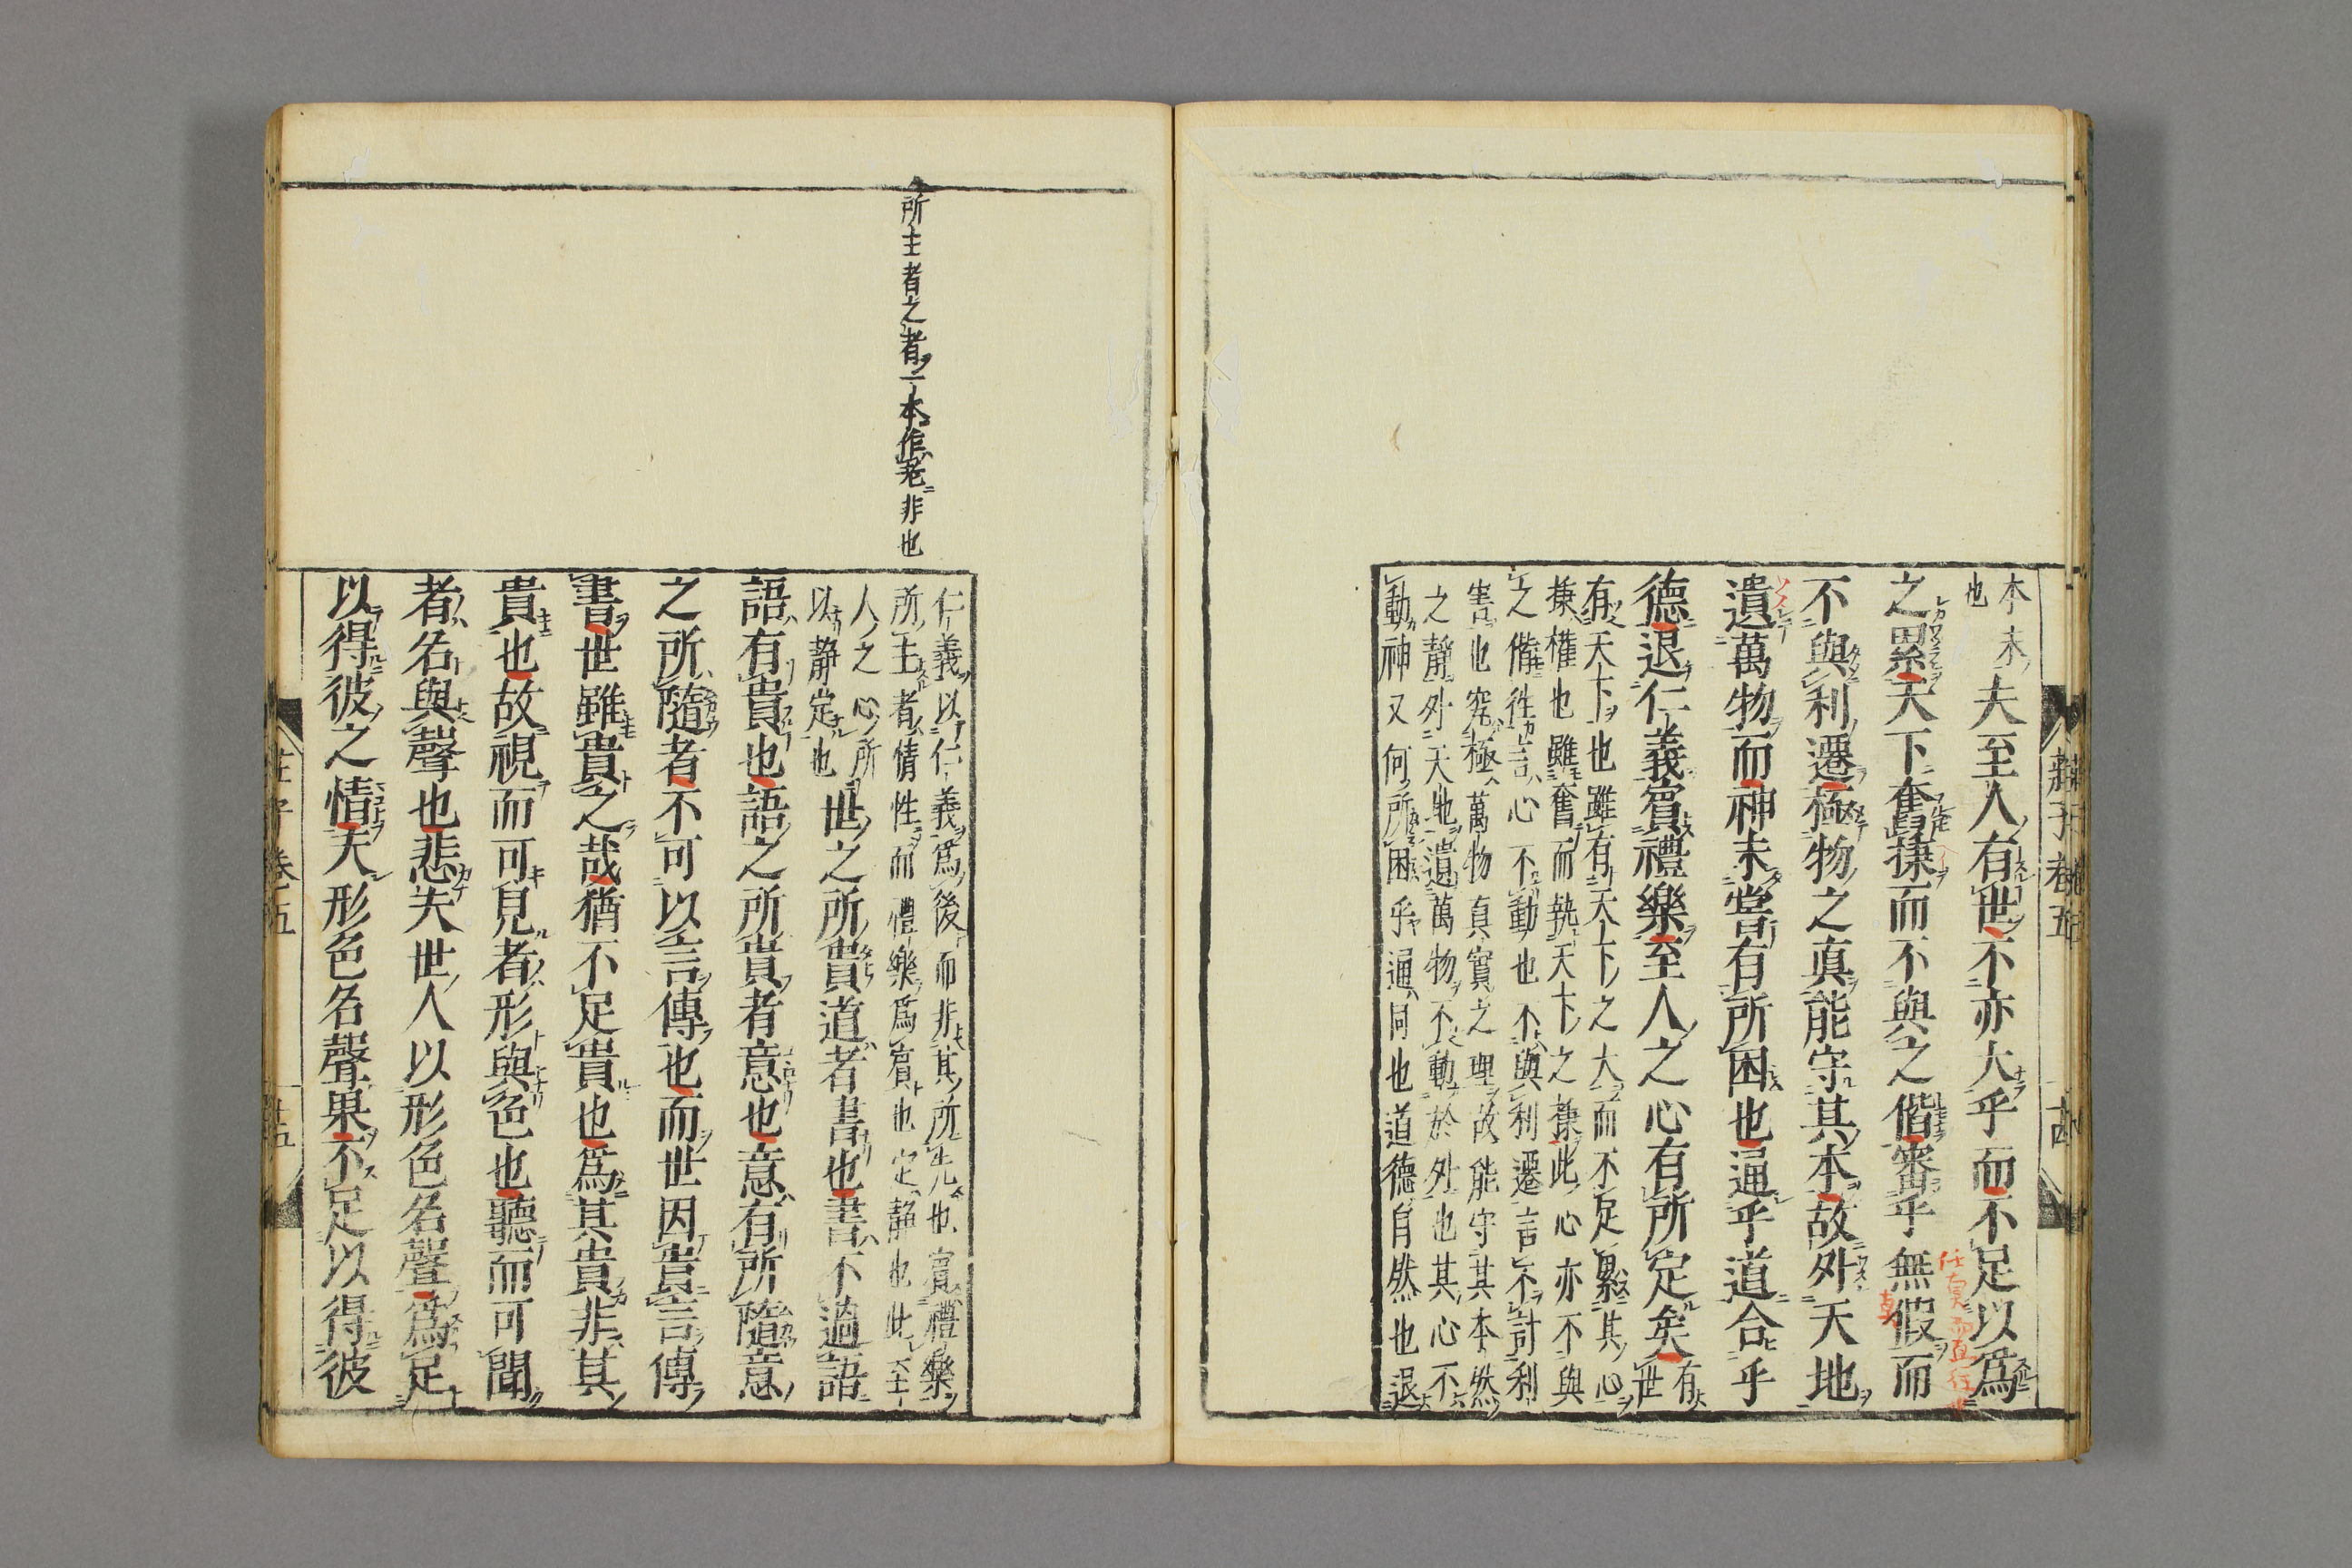 本末
也
夫至人有世不亦大乎而不足以爲
之累天下奮棅而不與之偕審乎無假而
不與利遷極物之真能守其本故外天地
遺萬物而神未嘗有所困也通乎道合乎
德退仁義賓禮樂至人之心有所定矣
有
世
有天下也雖有天下之大而不足累其心
棅權也雖奮而執天下之棅此心亦不與
之偕往言心不動也不與利遷言不計利
害也究極萬物真實之理故能守其本然
之靜外天地遺萬物不動於外也其心不
動神又何所困乎通同也道德自然也退
仁義以仁義爲後而非其所先也賓禮樂
所主者情性而禮樂爲賓也定靜也此至
人之心所
以靜定也
世之所貴道者書也書不過語
語有貴也語之所貴者意也意有所隨意
之所隨者不可以言傳也而世因貴言傳
書世雖貴之哉猶不足貴也爲其貴非其
貴也故視而可見者形與色也聽而可聞
者名與聲也悲夫世人以形色名聲爲足
以得彼之情夫形色名聲果不足以得彼
所主者之者一本作老非也
莊子卷五